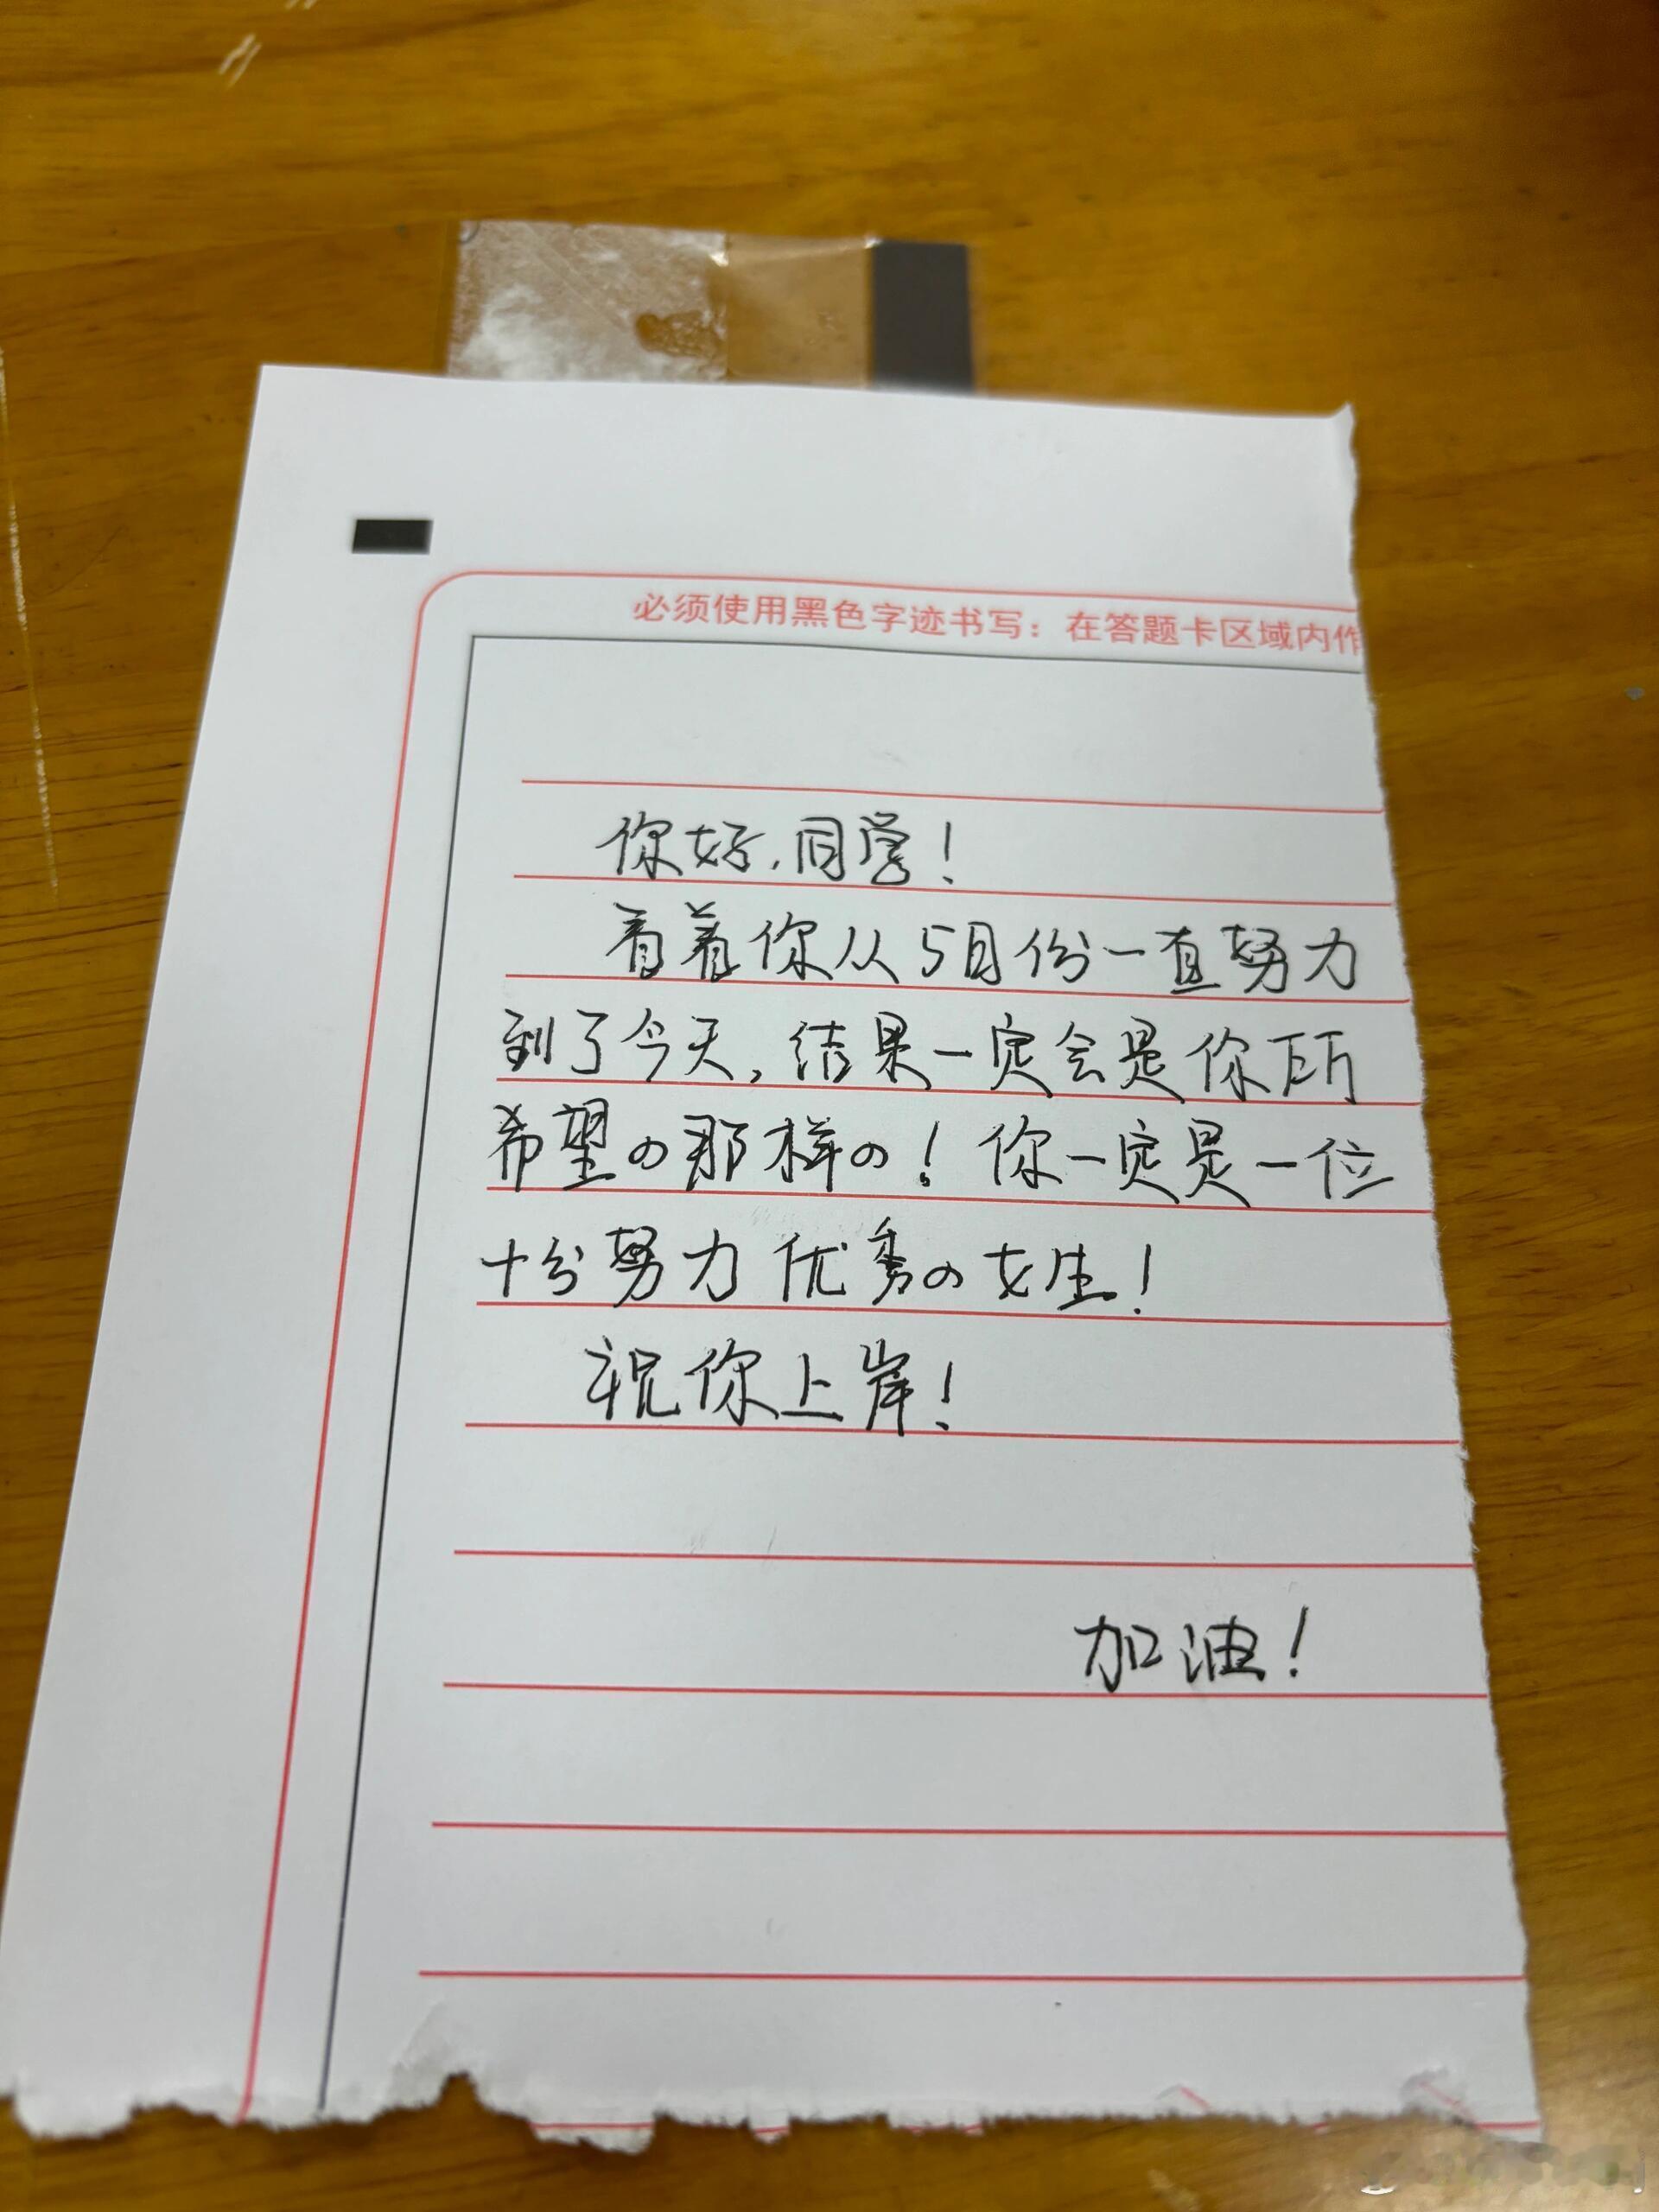 必须使用黑色字迹书写：在答题卡区域内作
你好,同学!
看着你从5月份一直努力
到了今天,结果一定会是你所
希望の那样の!你一定是一位
十分努力优秀の女生!
祝你上岸!
加油!